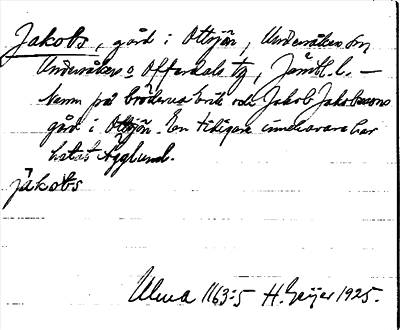 Jakobs, gård i Ottsjön, Undersåkers sn
Undersåkers o Offerdals tg, Jämtl. l. —
Namn på bröderna Erik och Jakob Jakobssons
gård i Ottsjön. En tidigare innehavare har
hetatÄgglund.
jakobs
Ulma 1163:5 H. Geijer 1925.